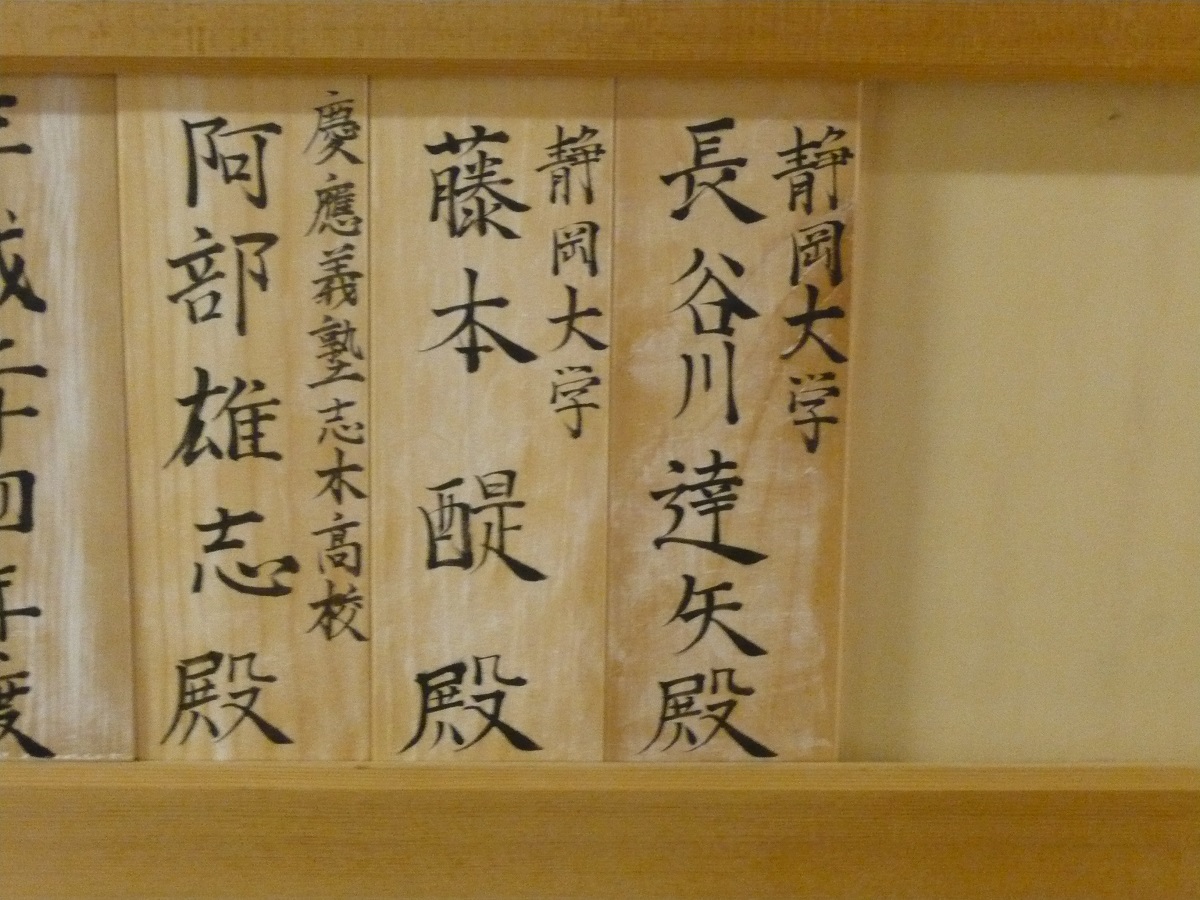 静岡大学
長谷川達矢殿
静岡大学
藤本醍殿
慶應義塾志木高校
阿部雄志殿
平成二十四年度